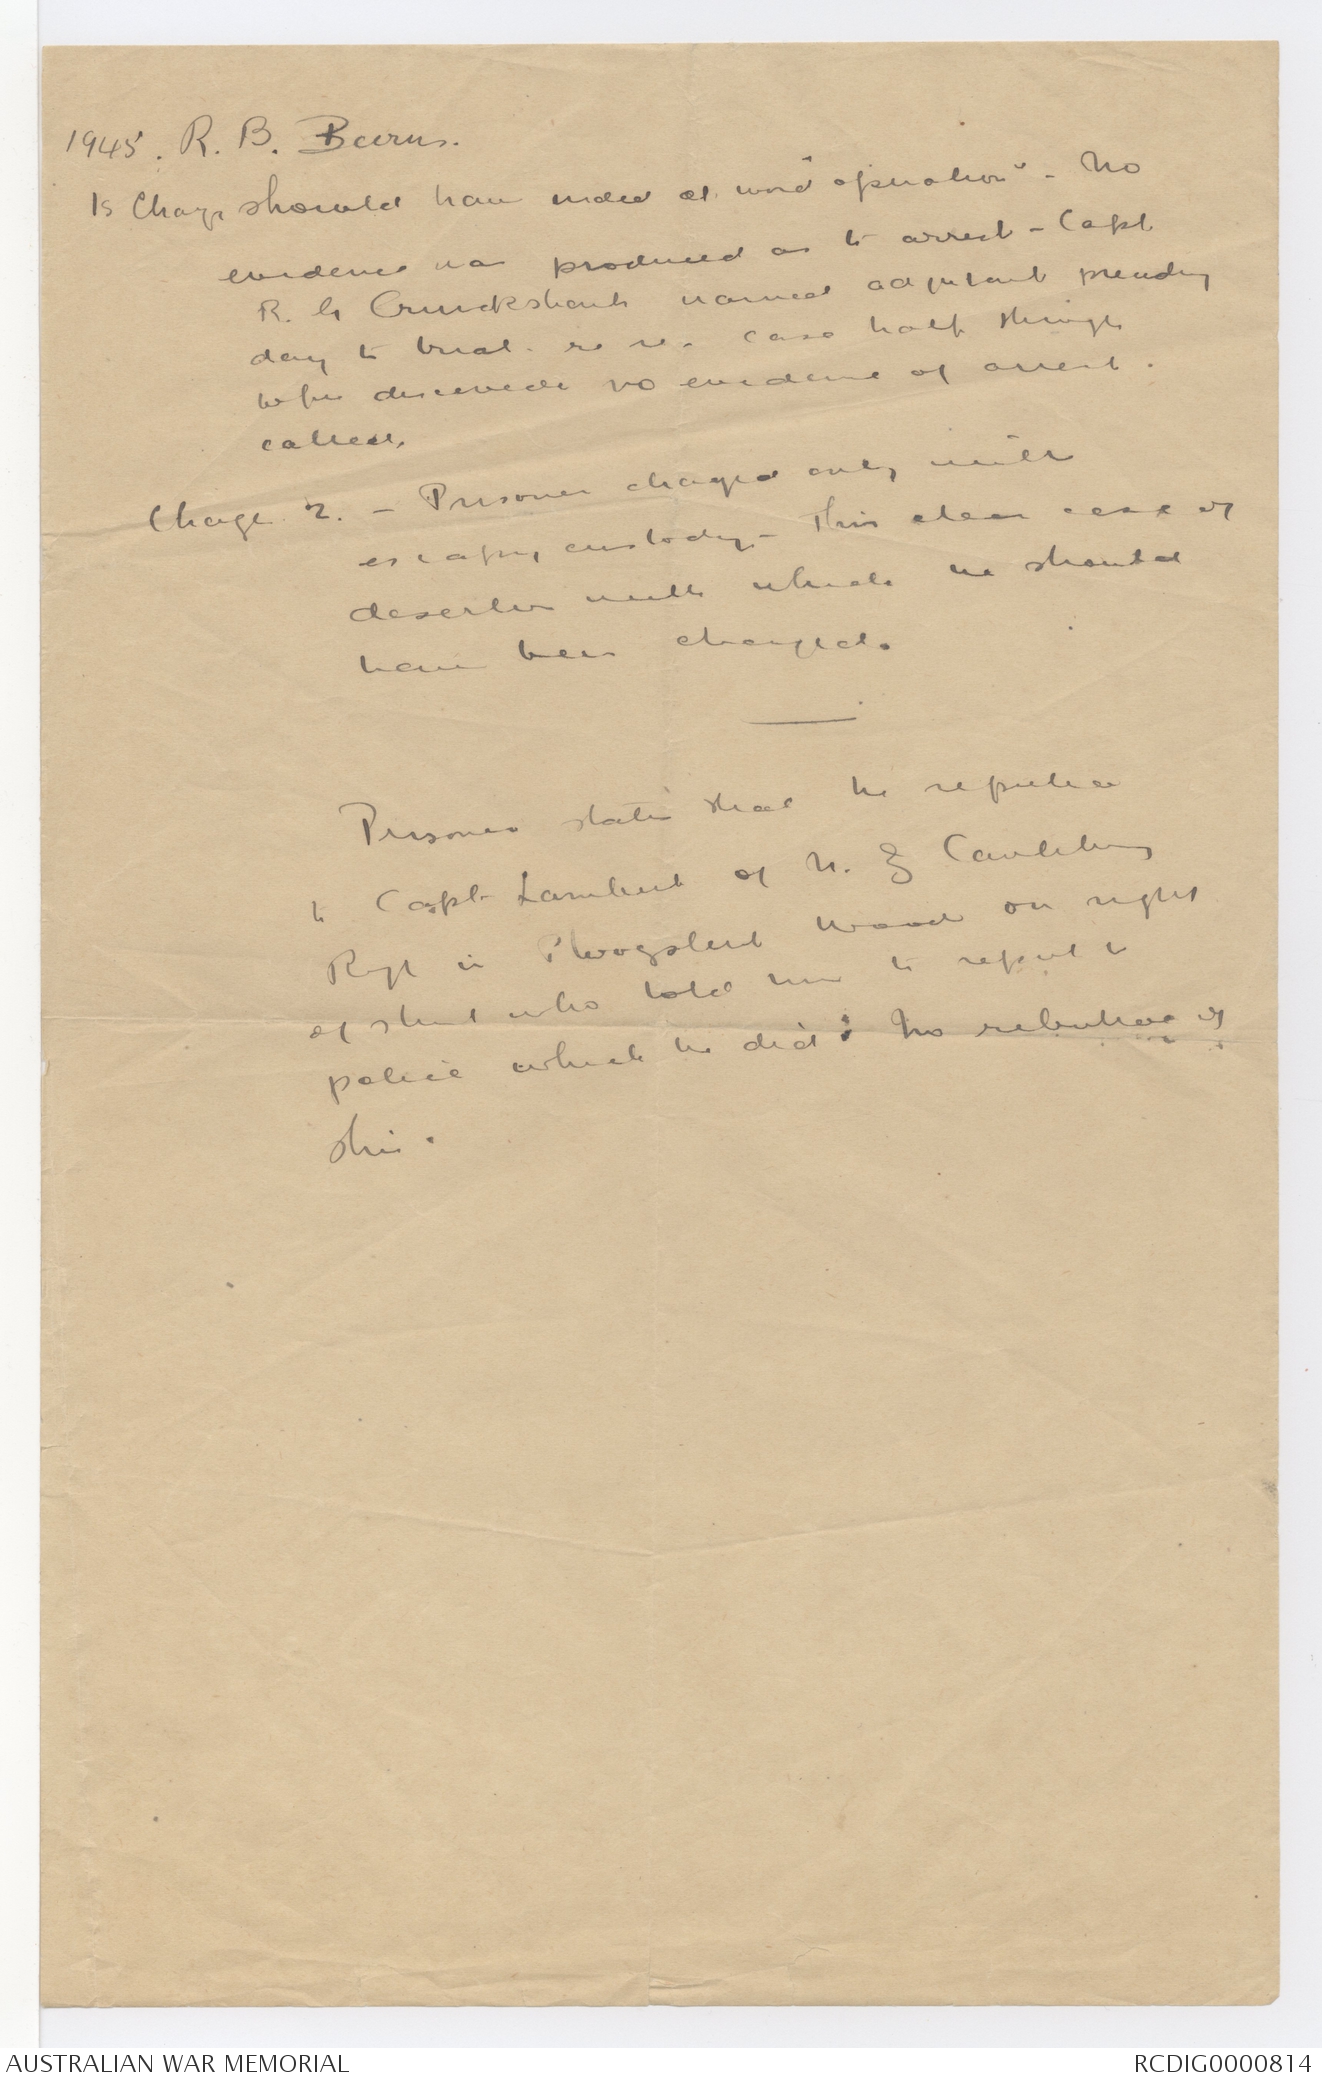 1945. R. B. Burns.
1st Charge should have ended at word "operation" - No
evidence was produced as to arrest - Capt
R. G Cruickshank named adjutant preceding
day to trial. case half through
before discovered no evidence of arrest.
called.
Charge 2. - Prisoner charged only with
escaping custody - This clear case of
desertion with which he should
have been charged.
Prisoner states that he reported
to Capt Lambert of N. Z Canterbury
Regt in Ploegsteert wood on right
of street who told him to report to
police which he did: No rebuttal of
this.
AUSTRALIAN WAR MEMORIAL
RCDIG0000814